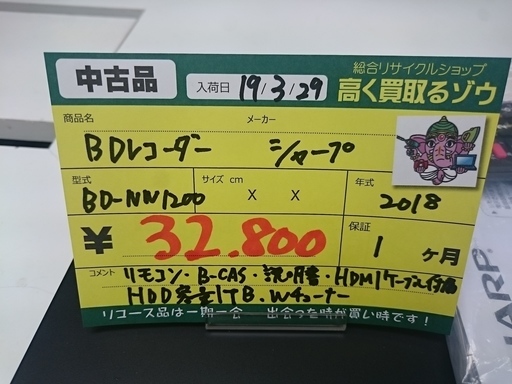 中古品
入荷日 19/3/29
総合リサイクルショップ
高く買取るゾウ
商品名 メーカー
BDレコーダー シャープ
型式 サイズ cm 年式
BD-NW1200 X X 2018
¥ 32,800 保証 1 ヶ月
コメント リモコン・B-CAS・説明書・HDMIケーブル付属
HDD容量1TB.Wチューナー
リユース品は一期一会 出会った時が買い時です!